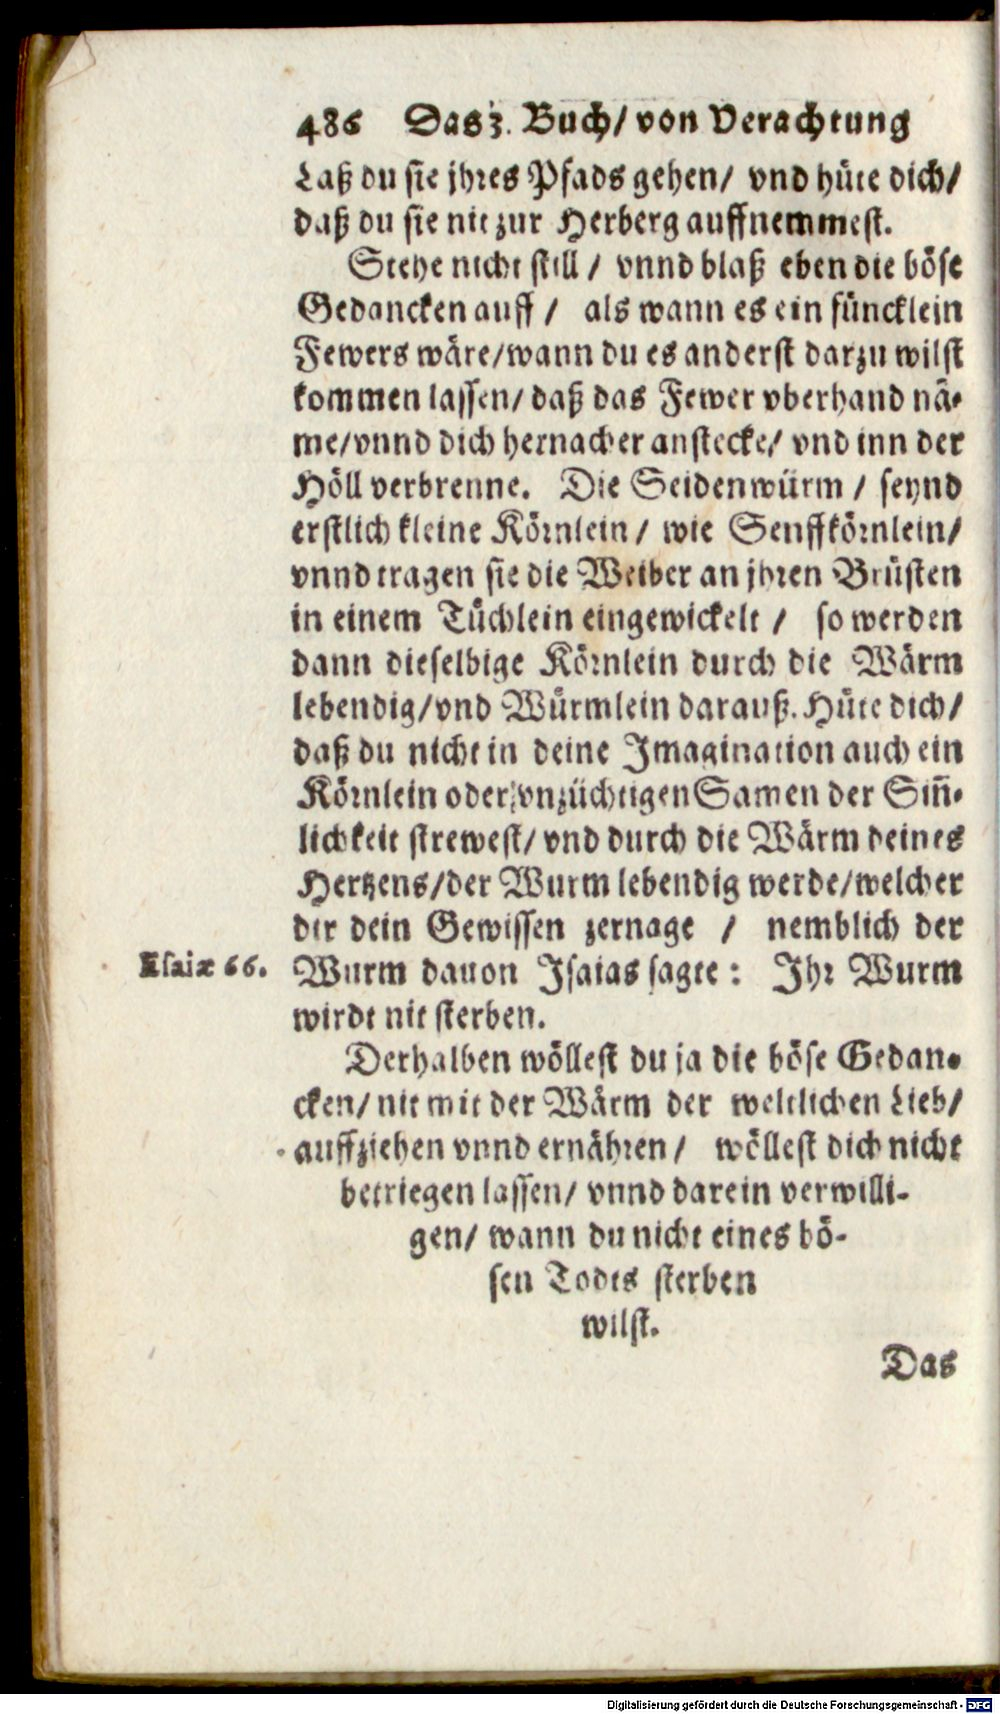 486 Das 3. Buch/ von Verachtung
Laß du sie jhres Pfads gehen/ vnd hüte dich/
daß du sie nit zur Herberg auffnemmest.
Stehe nicht still / vnnd blaß eben die böse
Gedancken auff / als wann es ein füncklein
Fewers wäre/wann du es anderst darzu wilst
kommen lassen/ daß das Fewer vberhand nä-
me/vnnd dich hernacher anstecke/ vnd inn der
Höll verbrenne. Die Seidenwürm / seynd
erstlich kleine Körnlein / wie Senffkörnlein/
vnnd tragen sie die Weiber an jhren Brüsten
in einem Tüchlein eingewickelt / so werden
dann dieselbige Körnlein durch die Wärm
lebendig/vnd Würmlein darauß. Hüte dich/
daß du nicht in deine Imagination auch ein
Körnlein oder vnzüchtigen Samen der Siñ-
lichkeit strewest/ vnd durch die Wärm deines
Hertzens/der Wurm lebendig werde/welcher
dir dein Gewissen zernage / nemblich der
Esaiæ 66. Wurm dauon Isaias sagte: Ihr Wurm
wirdt nit sterben.
Derhalben wöllest du ja die böse Gedan-
cken/ nit mit der Wärm der weltlichen Lieb/
auffziehen vnnd ernähren / wöllest dich nicht
betriegen lassen/ vnnd darein verwilli-
gen/ wann du nicht eines bö-
sen Todts sterben
wilst.
Das
Digitalisierung gefördert durch die Deutsche Forschungsgemeinschaft - DFG